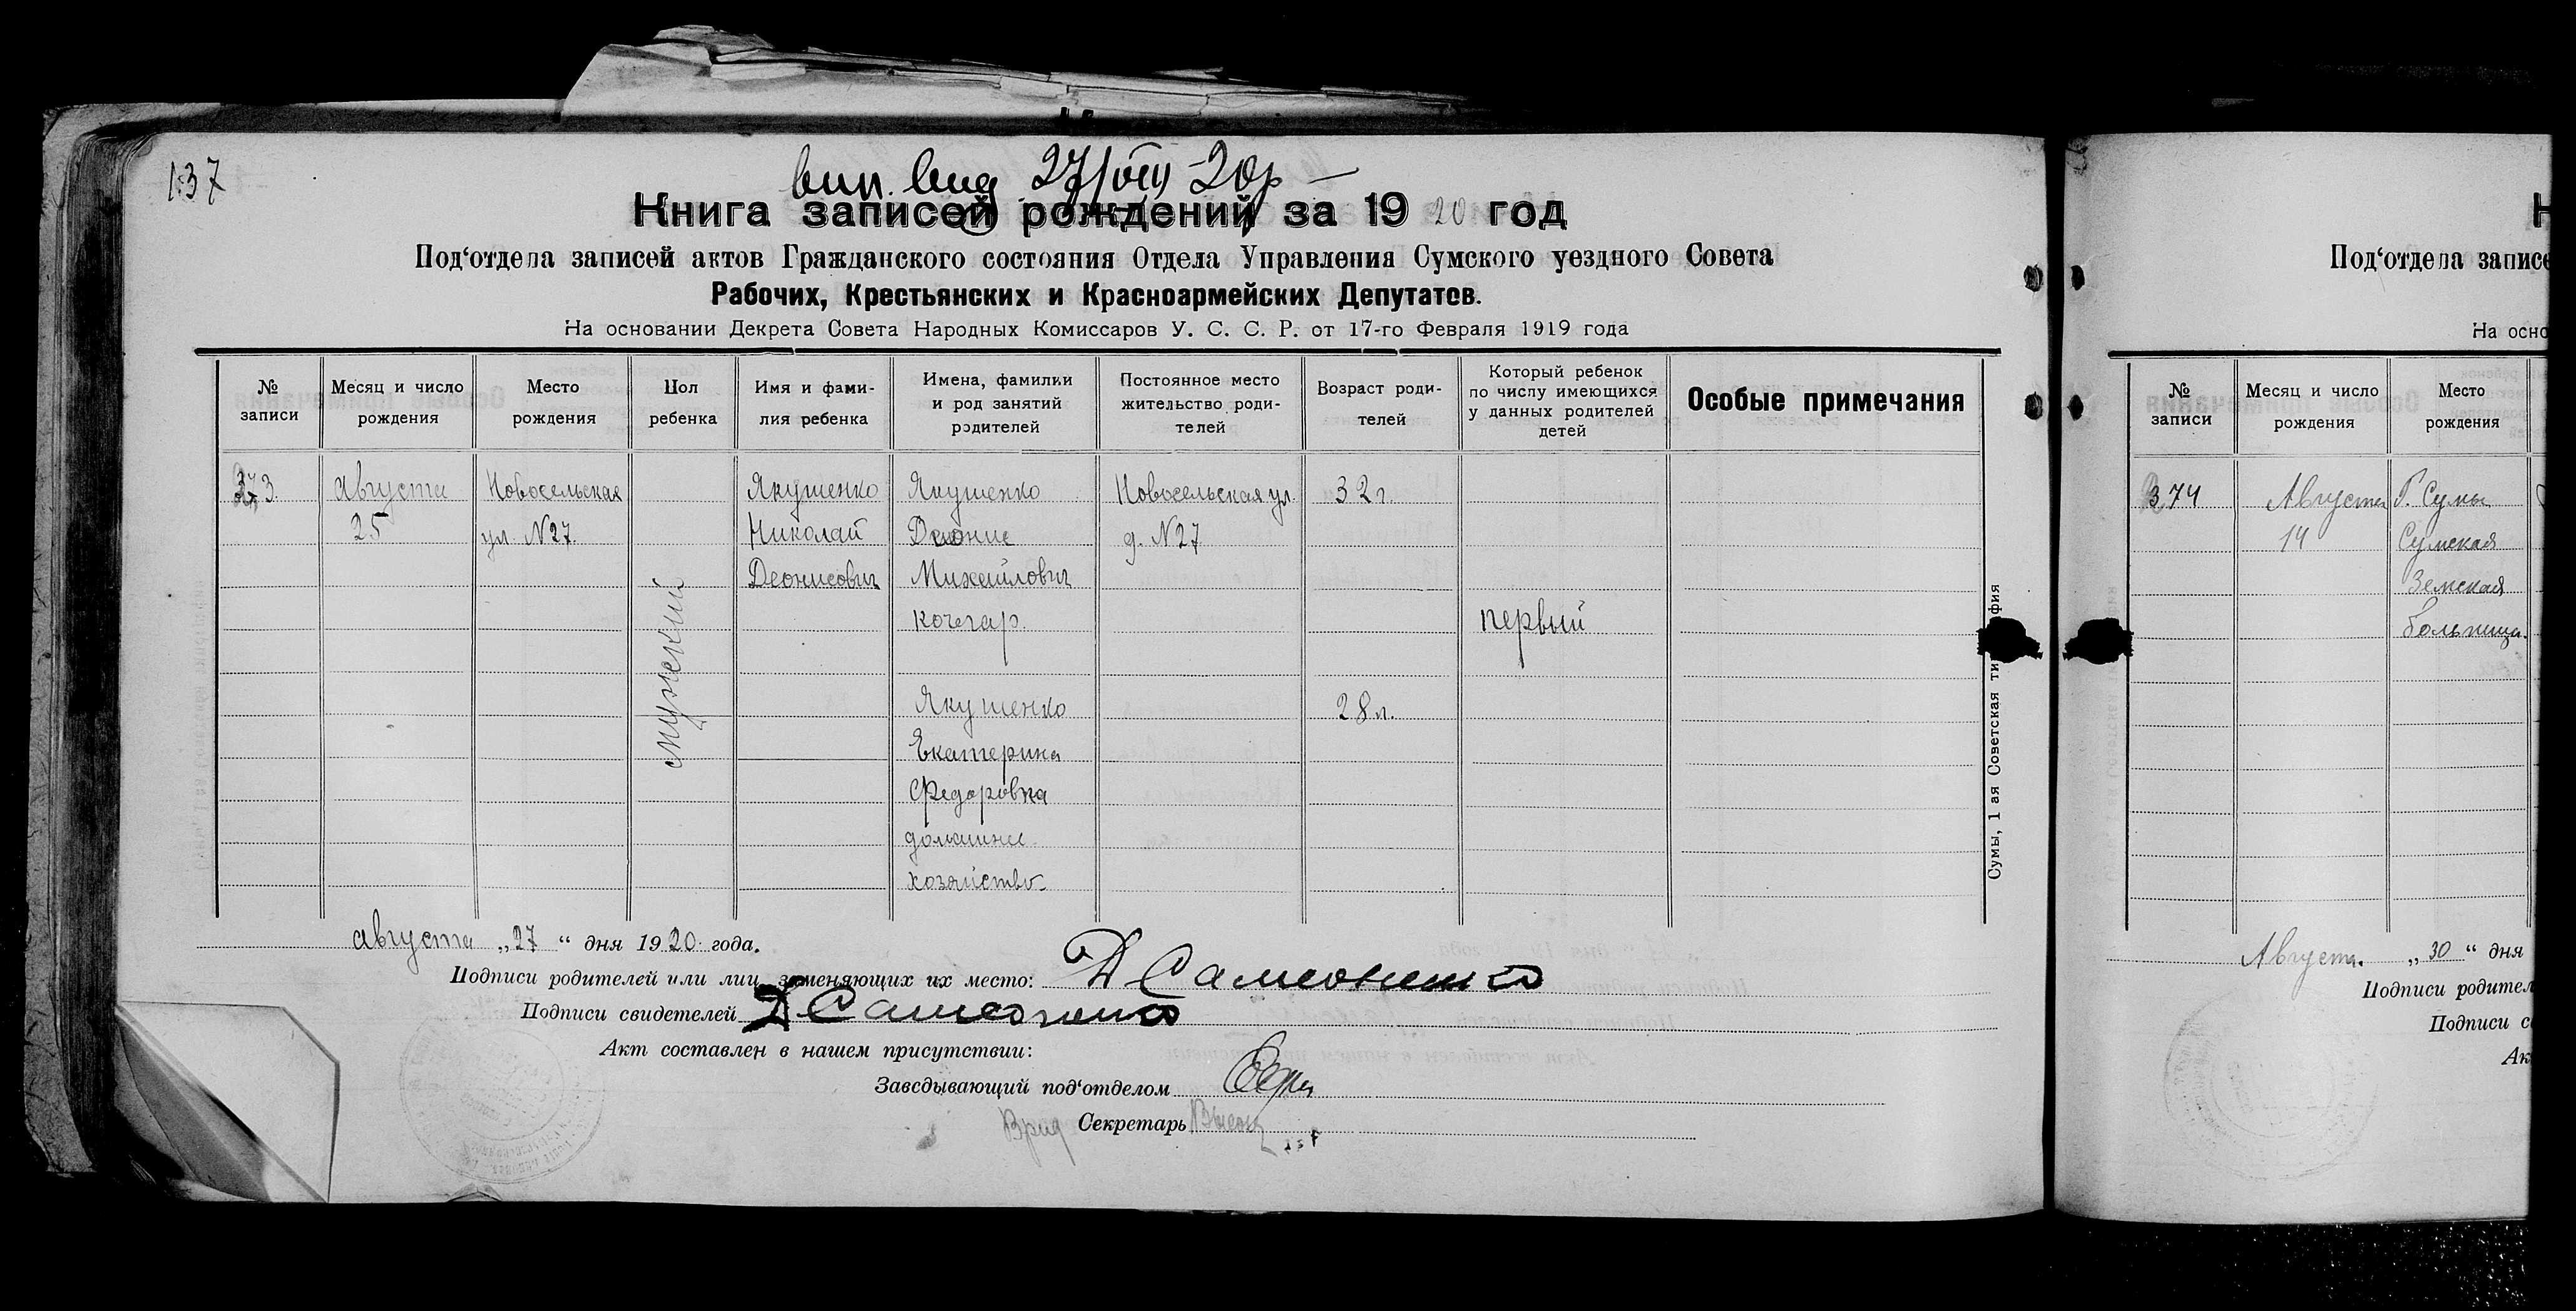 137
вип. вид 27/VIII-20р
Книга записей рождений за 1920 год
Под‘отдела записей актов Гражданского состояния Отдела Управления Сумского уездного Совета
Рабочих, Крестьянских и Красноармейских Депутатов.
На основании Декрета Совета Народных Комиссаров У. С. С. Р. от 17-го Февраля 1919 года
№ записи
Месяц и число рождения
Место рождения
Пол ребенка
Имя и фами-
лия ребенка
Имена, фамилии
и род занятий
родителей
Постоянное место
жительство роди-
телей
Возраст роди-
телей
Который ребенок
по числу имеющихся
у данных родителей
детей
Особые примечания
373.
августа
25
Новосельская
ул N27.
мужский
Якушенко
Николай
Деонисович
Якушенко
Деонис
Михайлович
кочегар.
Якушенко
Екатерина
Федоровна
домашнее
хозяйство
Новосельская ул.
д. N27
32 г.
28 л.
первый
Сумы, 1 ая Советская
августа „27“ дня 1920 года.
Подписи родителей или лиц, заменяющих их место:
Подписи свидетелей
Акт составлен в нашем присутствии:
Заведывающий под‘отделом
Врид Секретарь
Под‘отдела записе
На осно
№ записи
Месяц и число рождения
Место рождения
374
Августа
14
Г. Сумы
Сумская
Земская
больница.
Августа. „30“ дня
Подписи родител
Подписи с
Ак